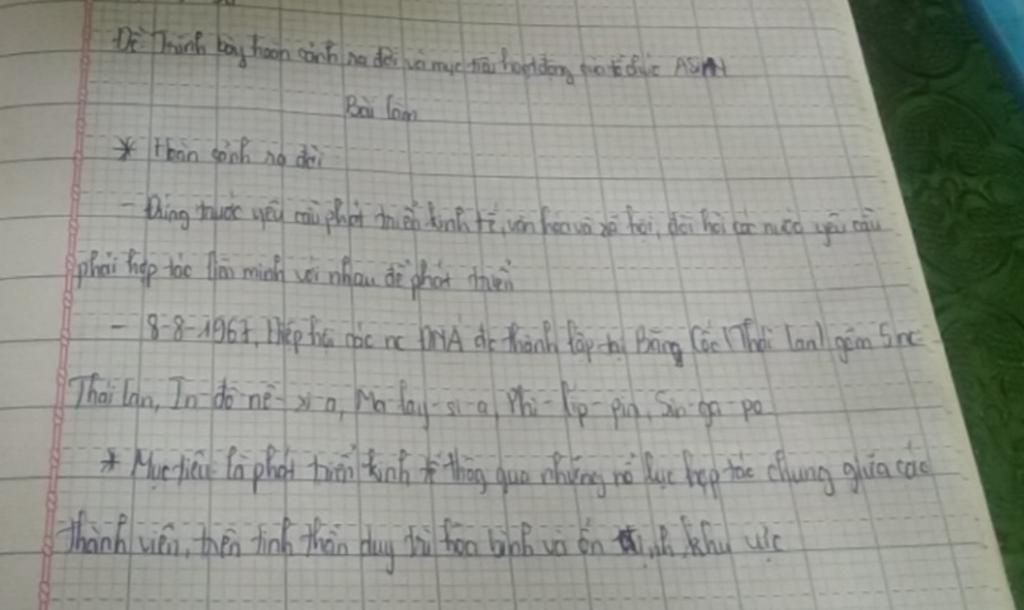 Đề Trình bày hoàn cảnh ra đời và mục tiêu hoạt động của tổ chức ASEAN
Bài làm
* Hoàn cảnh ra đời
- Đứng trước yêu cầu phát triển kinh tế, văn hóa và xã hội, đòi hỏi các nước yêu cầu
phải hợp tác liên minh với nhau để phát triển
- 8-8-1967, Hiệp hội các nc ĐNÁ đc thành lập tại Băng Cốc (Thái Lan) gồm 5 nc
Thái Lan, In-đô-nê-xi-a, Ma-lay-si-a, Phi-líp-pin, Sin-ga-po
* Mục tiêu là phát triển kinh tế thông qua những nỗ lực hợp tác chung giữa các
thành viên, trên tinh thần duy trì hòa bình và ổn định khu vực